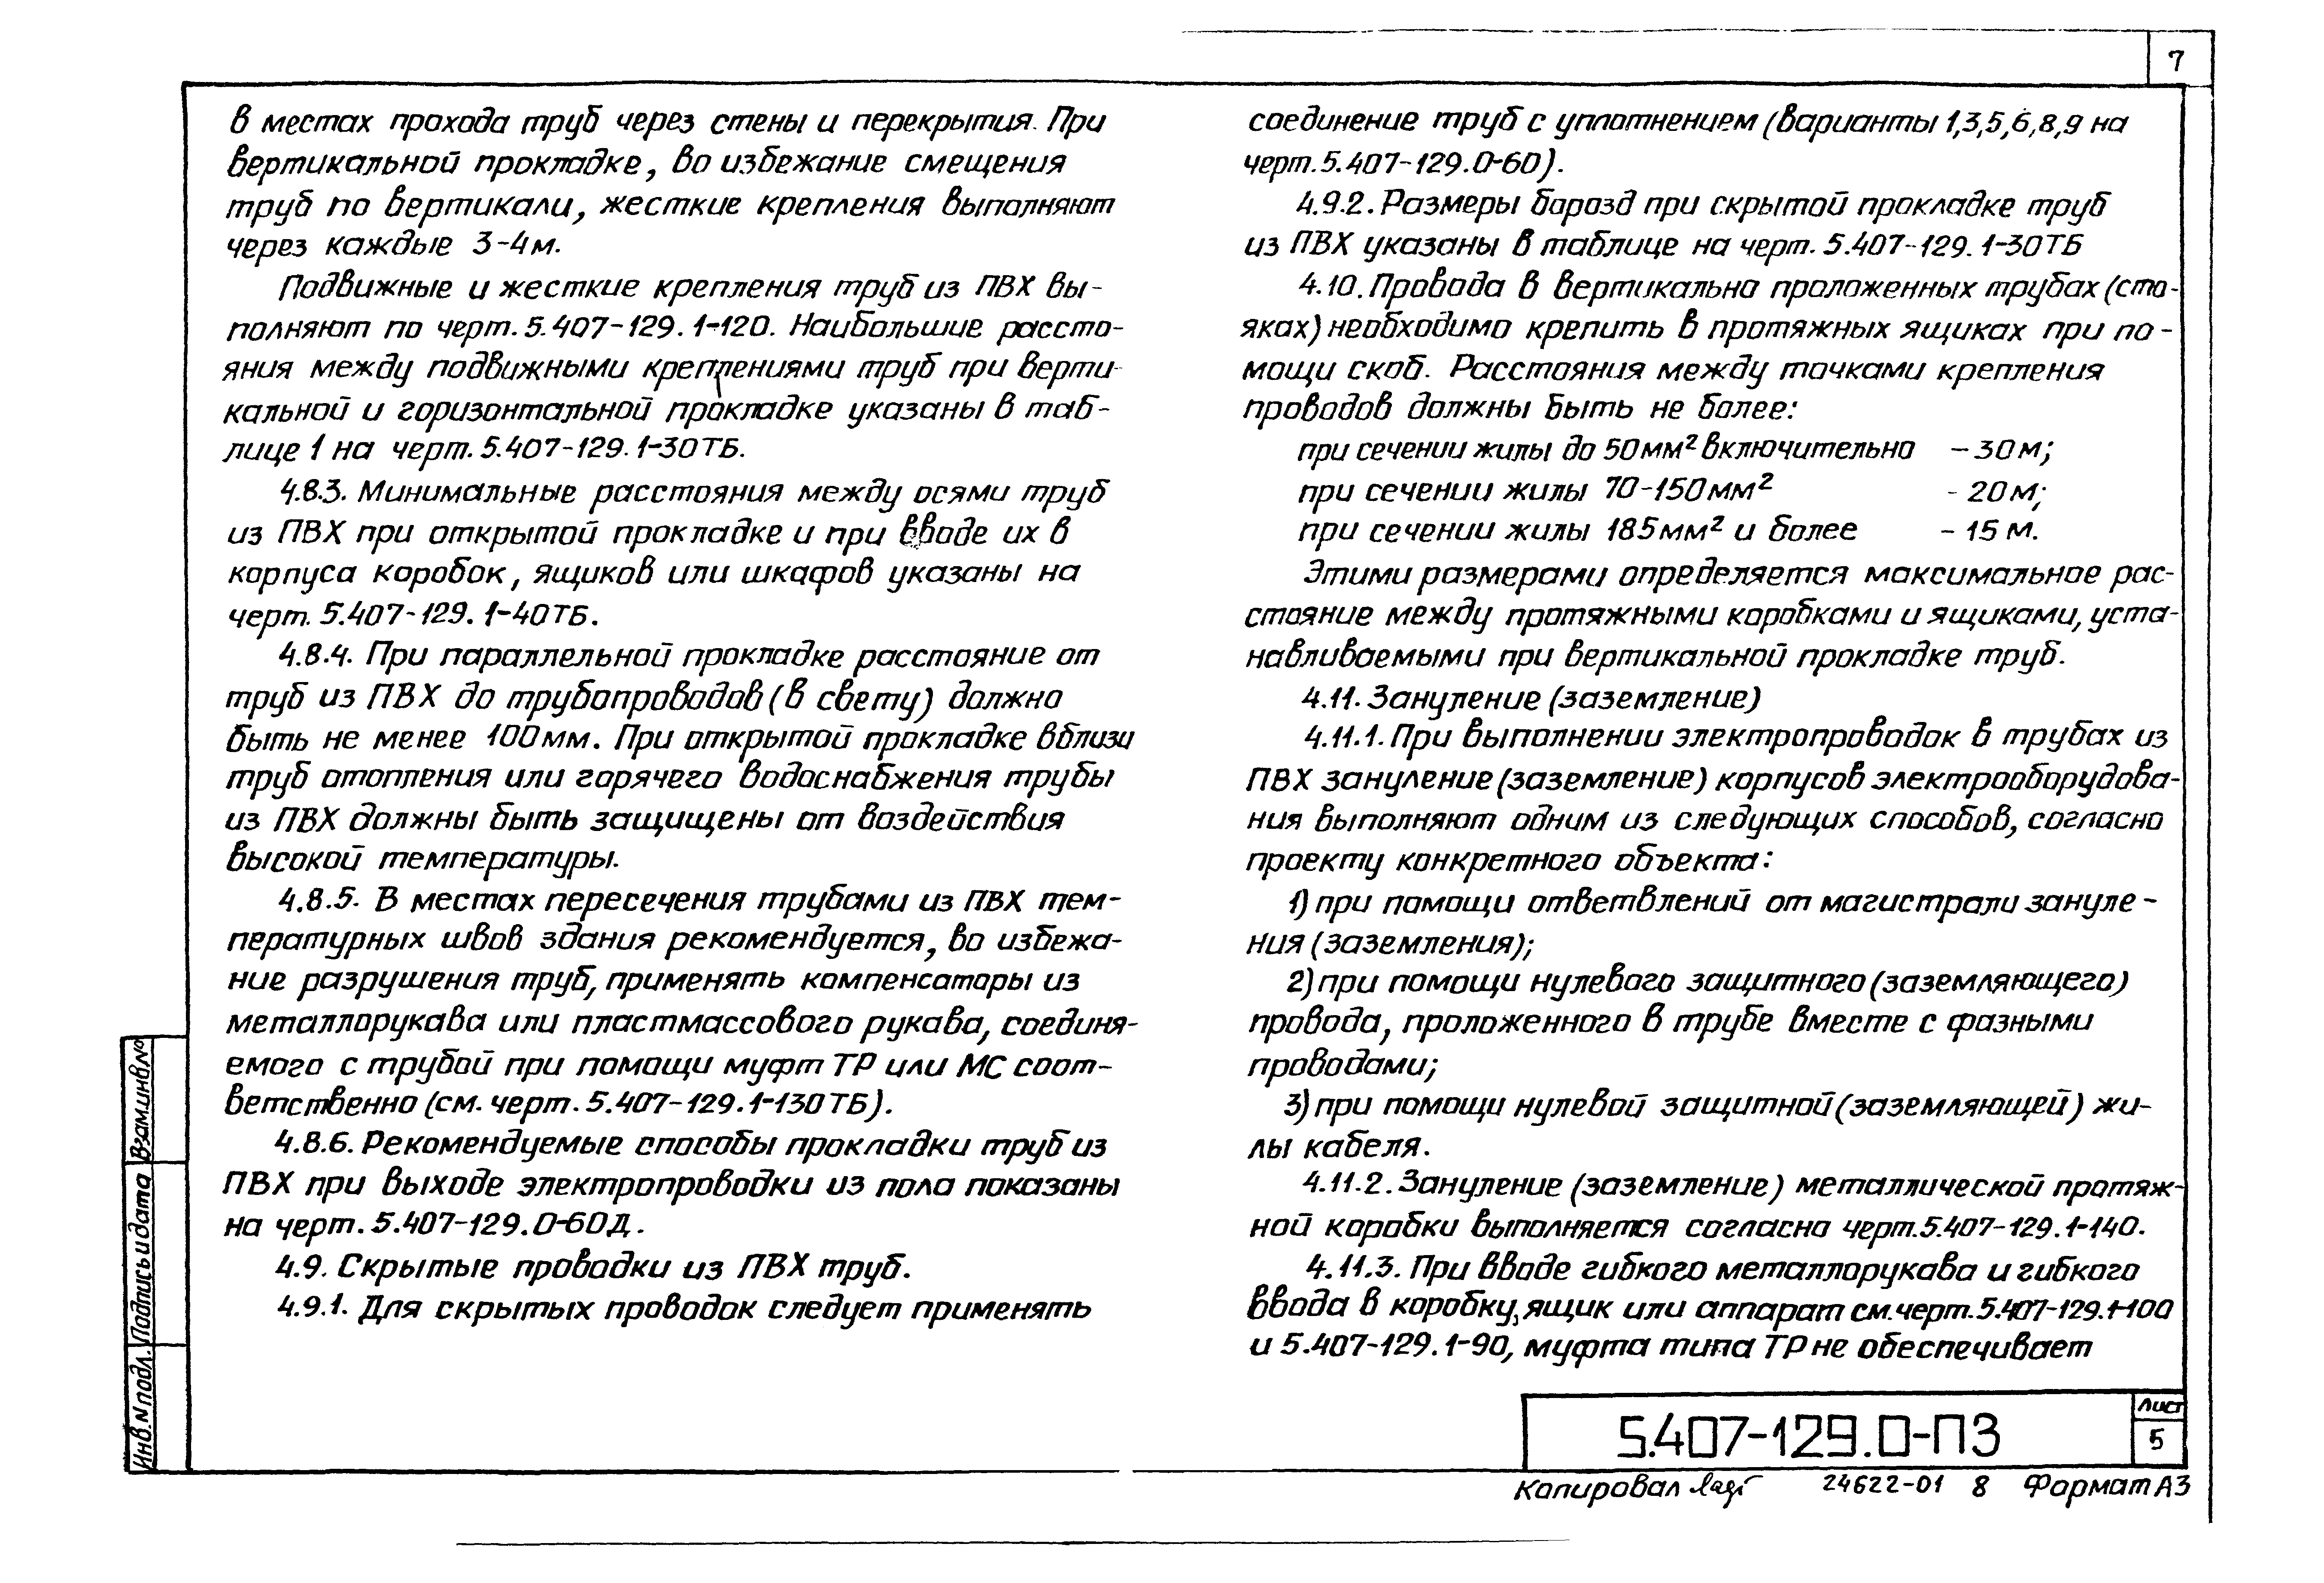 7
в местах прохода труб через стены и перекрытия. При
вертикальной прокладке, во избежание смещения
труб по вертикали, жесткие крепления выполняют
через каждые 3-4м.
Подвижные и жесткие крепления труб из ПВХ вы-
полняют по черт. 5.407-129.1-120. Наибольшие рассто-
яния между подвижными креплениями труб при верти-
кальной и горизонтальной прокладке указаны в таб-
лице 1 на черт. 5.407-129.1-30ТБ.
4.8.3. Минимальные расстояния между осями труб
из ПВХ при открытой прокладке и при вводе их в
корпуса коробок, ящиков или шкафов указаны на
черт. 5.407-129.1-40ТБ.
4.8.4. При параллельной прокладке расстояние от
труб из ПВХ до трубопроводов (в свету) должно
быть не менее 100мм. При открытой прокладке вблизи
труб отопления или горячего водоснабжения трубы
из ПВХ должны быть защищены от воздействия
высокой температуры.
4.8.5. В местах пересечения трубами из ПВХ тем-
пературных швов здания рекомендуется, во избежа-
ние разрушения труб, применять компенсаторы из
металлорукава или пластмассового рукава, соединя-
емого с трубой при помощи муфт ТР или МС соот-
ветственно (см. черт. 5.407-129.1-130ТБ).
4.8.6. Рекомендуемые способы прокладки труб из
ПВХ при выходе электропроводки из пола показаны
на черт. 5.407-129.0-60Д.
4.9. Скрытые проводки из ПВХ труб.
4.9.1. Для скрытых проводок следует применять
соединение труб с уплотнением (варианты 1,3,5,6,8,9 на
черт. 5.407-129.0-60).
4.9.2. Размеры борозд при скрытой прокладке труб
из ПВХ указаны в таблице на черт. 5.407-129.1-30ТБ
4.10. Провода в вертикально проложенных трубах (сто-
яках) необходимо крепить в протяжных ящиках при по-
мощи скоб. Расстояния между точками крепления
проводов должны быть не более:
при сечении жилы до 50мм² включительно - 30м;
при сечении жилы 70-150мм² - 20м;
при сечении жилы 185мм² и более - 15 м.
Этими размерами определяется максимальное рас-
стояние между протяжными коробками и ящиками, уста-
навливаемыми при вертикальной прокладке труб.
4.11. Зануление (заземление)
4.11.1. При выполнении электропроводок в трубах из
ПВХ зануление (заземление) корпусов электрооборудова-
ния выполняют одним из следующих способов, согласно
проекту конкретного объекта:
1) при помощи ответвлений от магистрали зануле-
ния (заземления);
2) при помощи нулевого защитного (заземляющего)
провода, проложенного в трубе вместе с фазными
проводами;
3) при помощи нулевой защитной (заземляющей) жи-
лы кабеля.
4.11.2. Зануление (заземление) металлической протяж-
ной коробки выполняется согласно черт. 5.407-129.1-140.
4.11.3. При вводе гибкого металлорукава и гибкого
ввода в коробку, ящик или аппарат см. черт. 5.407-129.1-100
и 5.407-129.1-90, муфта типа ТР не обеспечивает
Взам.инв.№
Подпись и дата
Инв.N подл.
5.407-129.0-ПЗ
Лист
5
Копировал 24622-01 8 Формат А3